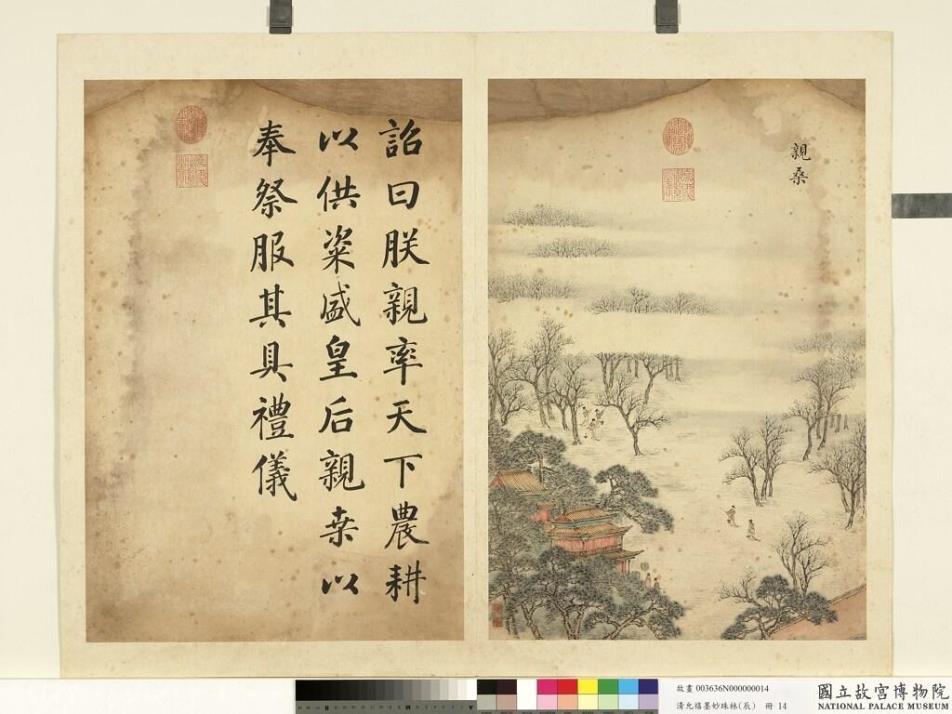 親桑
詔曰朕親率天下農耕
以供粢盛皇后親桒以
奉祭服其具禮儀
故畫 003636N000000014
清允禧墨妙珠林(辰) 冊 14
國立故宮博物院
NATIONAL PALACE MUSEUM